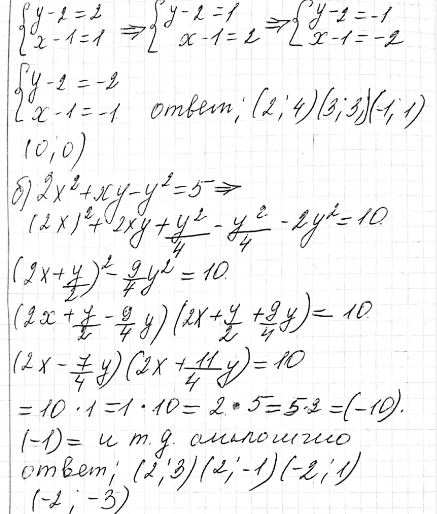 {y-2=2 => {y-2=1 => {y-2=-1
x-1=1 x-1=2 x-1=-2
{y-2=-2
x-1=-1 ответ; (2;4)(3;3)(-1;1)
(0;0)
б) 2x²+xy-y²=5 =>
(2x)²+2xy+y²/4-y²/4-2y²=10
(2x+y/2)²-9/4y²=10
(2x+y/2-9/4y)(2x+y/2+9/4y)=10
(2x-7/4y)(2x+11/4y)=10
=10·1=1·10=2·5=5·2=(-10).
(-1)= и т.д.
ответ; (2;3)(2;-1)(-2;1)
(-2;-3)